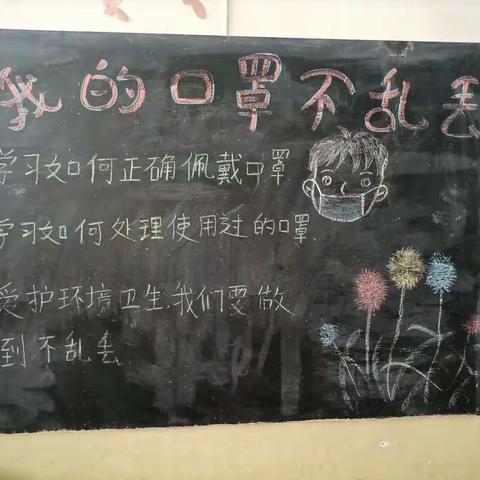 我的口罩不乱丢
学习如何正确佩戴口罩
学习如何处理使用过的口罩
爱护环境卫生,我们要做
到不乱丢